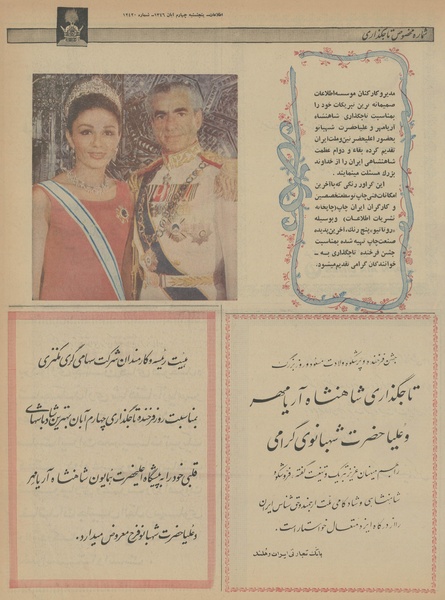 اطلاعات - پنجشنبه چهارم آبان ۱۳۴۶ - شماره ۱۲۴۲۰
شماره مخصوص تاجگذاری
مدیر و کارکنان موسسه اطلاعات
صمیمانه ترین تبریکات خود را
بمناسبت تاجگذاری شاهنشاه
آریامهر و علیاحضرت شهبانو
بحضور اعلیحضرتین و ملت ایران
تقدیم کرده بقاء و دوام عظمت
شاهنشاهی ایران را از خداوند
بزرگ مسئلت مینمایند.
این گراور رنگی که با آخرین
امکانات فنی چاپ توسط متخصصین
و کارگران ایران چاپ (چاپخانه
نشریات اطلاعات) وبوسیله
«روتاتیو» پنج رنگ، آخرین پدیده
صنعت چاپ تهیه شده بمناسبت
جشن فرخنده تاجگذاری به -
خوانندگان گرامی تقدیم میشود.
جشن فرخنده و پرشکوه ولادت مسعود و روز بزرگ
تاجگذاری شاهنشاه آریامهر
و علیاحضرت شهبانوی گرامی
را بهم میهنان عزیز تبریک و تهنیت گفته، فر و شکوه
شاهنشاهی و شادکامی ملت ارجمند و حق شناس ایران
را از درگاه ایزد متعال خواستار است.
بانک تجارتی ایران و هلند
هیئت رئیسه و کارمندان شرکت سهامی گری مکنزی
بمناسبت روز فرخنده تاجگذاری چهارم آبان بهترین شادباشهای
قلبی خود را به پیشگاه اعلیحضرت همایون شاهنشاه آریامهر
و علیاحضرت شهبانو فرح معروض میدارد.